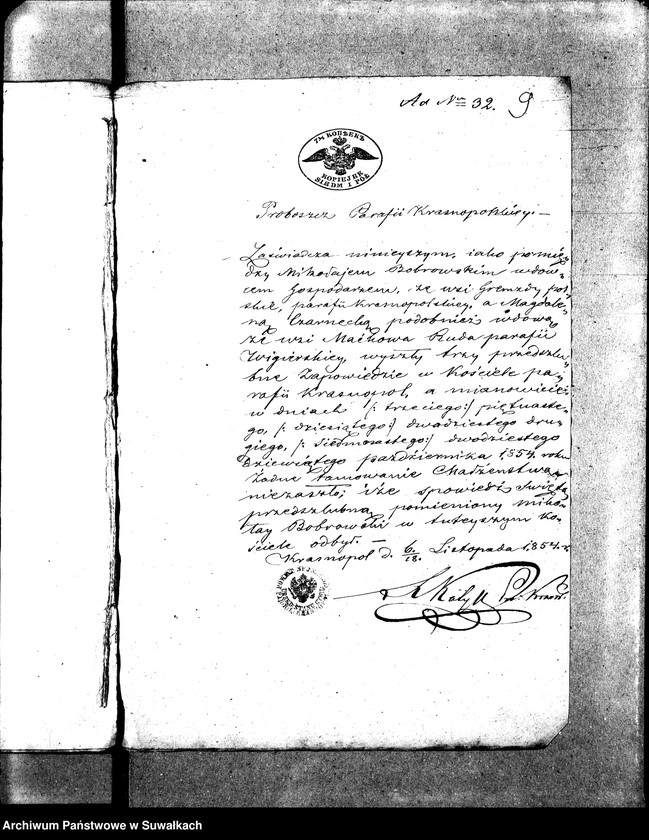 Ad Nrm 32. 9
7½ КОПѢЕКЪ
KOPIEJEK
SIEDM I PÓŁ
Proboszcz Parafii Krasnopolskiey. —
Zaświadcza ninieyszym, iako pomię-
dzy Mikołajem Bobrowskim wdow-
cem Gospodarzem, ze wsi Gremzdy pol
skie, parafii Krasnopolskiey, a Magdale-
ną Czarnecką podobnież wdową
ze wsi Maćkowa Ruda parafii
Wigierskiey, wyszły trzy przedszlu-
bne Zapowiedzie w Kościele pa-
rafii Krasnopol, a mianowicie:
w dniach /: trzeciego:/ piętnaste-
go, /: dziesiątego:/ dwudziestego dru-
giego, /: siedmnastego:/ dwudziestego
dziewiątego października 1854 roku
Żadne tamowanie Małżeństwa
niezaszło; iże spowiedź Świętą
przedszlubną pomieniony Miko-
łay Bobrowski w tuteyszym Ko-
ściele odbył. —
Krasnopol d. 6/18. Listopada 1854. r.
Archiwum Państwowe w Suwałkach